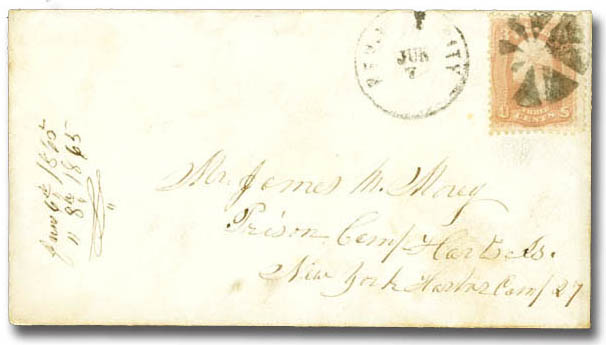 JUN
7
CITY
THREE
U CENTS S
June 6th 1865
" 8th 1865
"
Mr. James M. Morey
Prison Camp Hart Is.
New York Harbor Camp 27